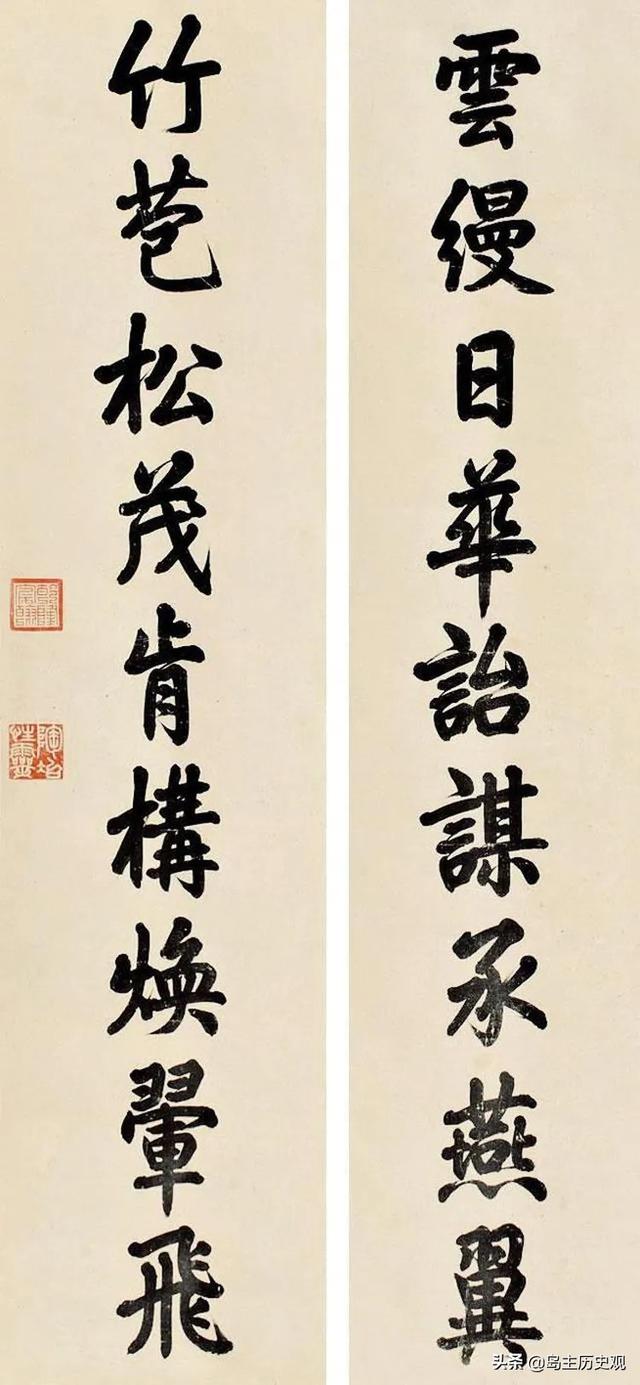 雲縵日華詒謀承燕翼
竹苞松茂肯構煥翬飛
陶冶性靈
头条 @岛主历史观